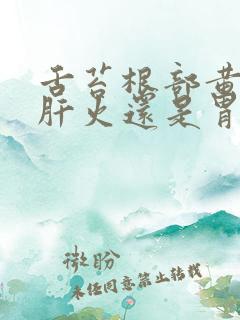 舌苔根部黄
肝火還是胃
微盼
未任同意禁止转载